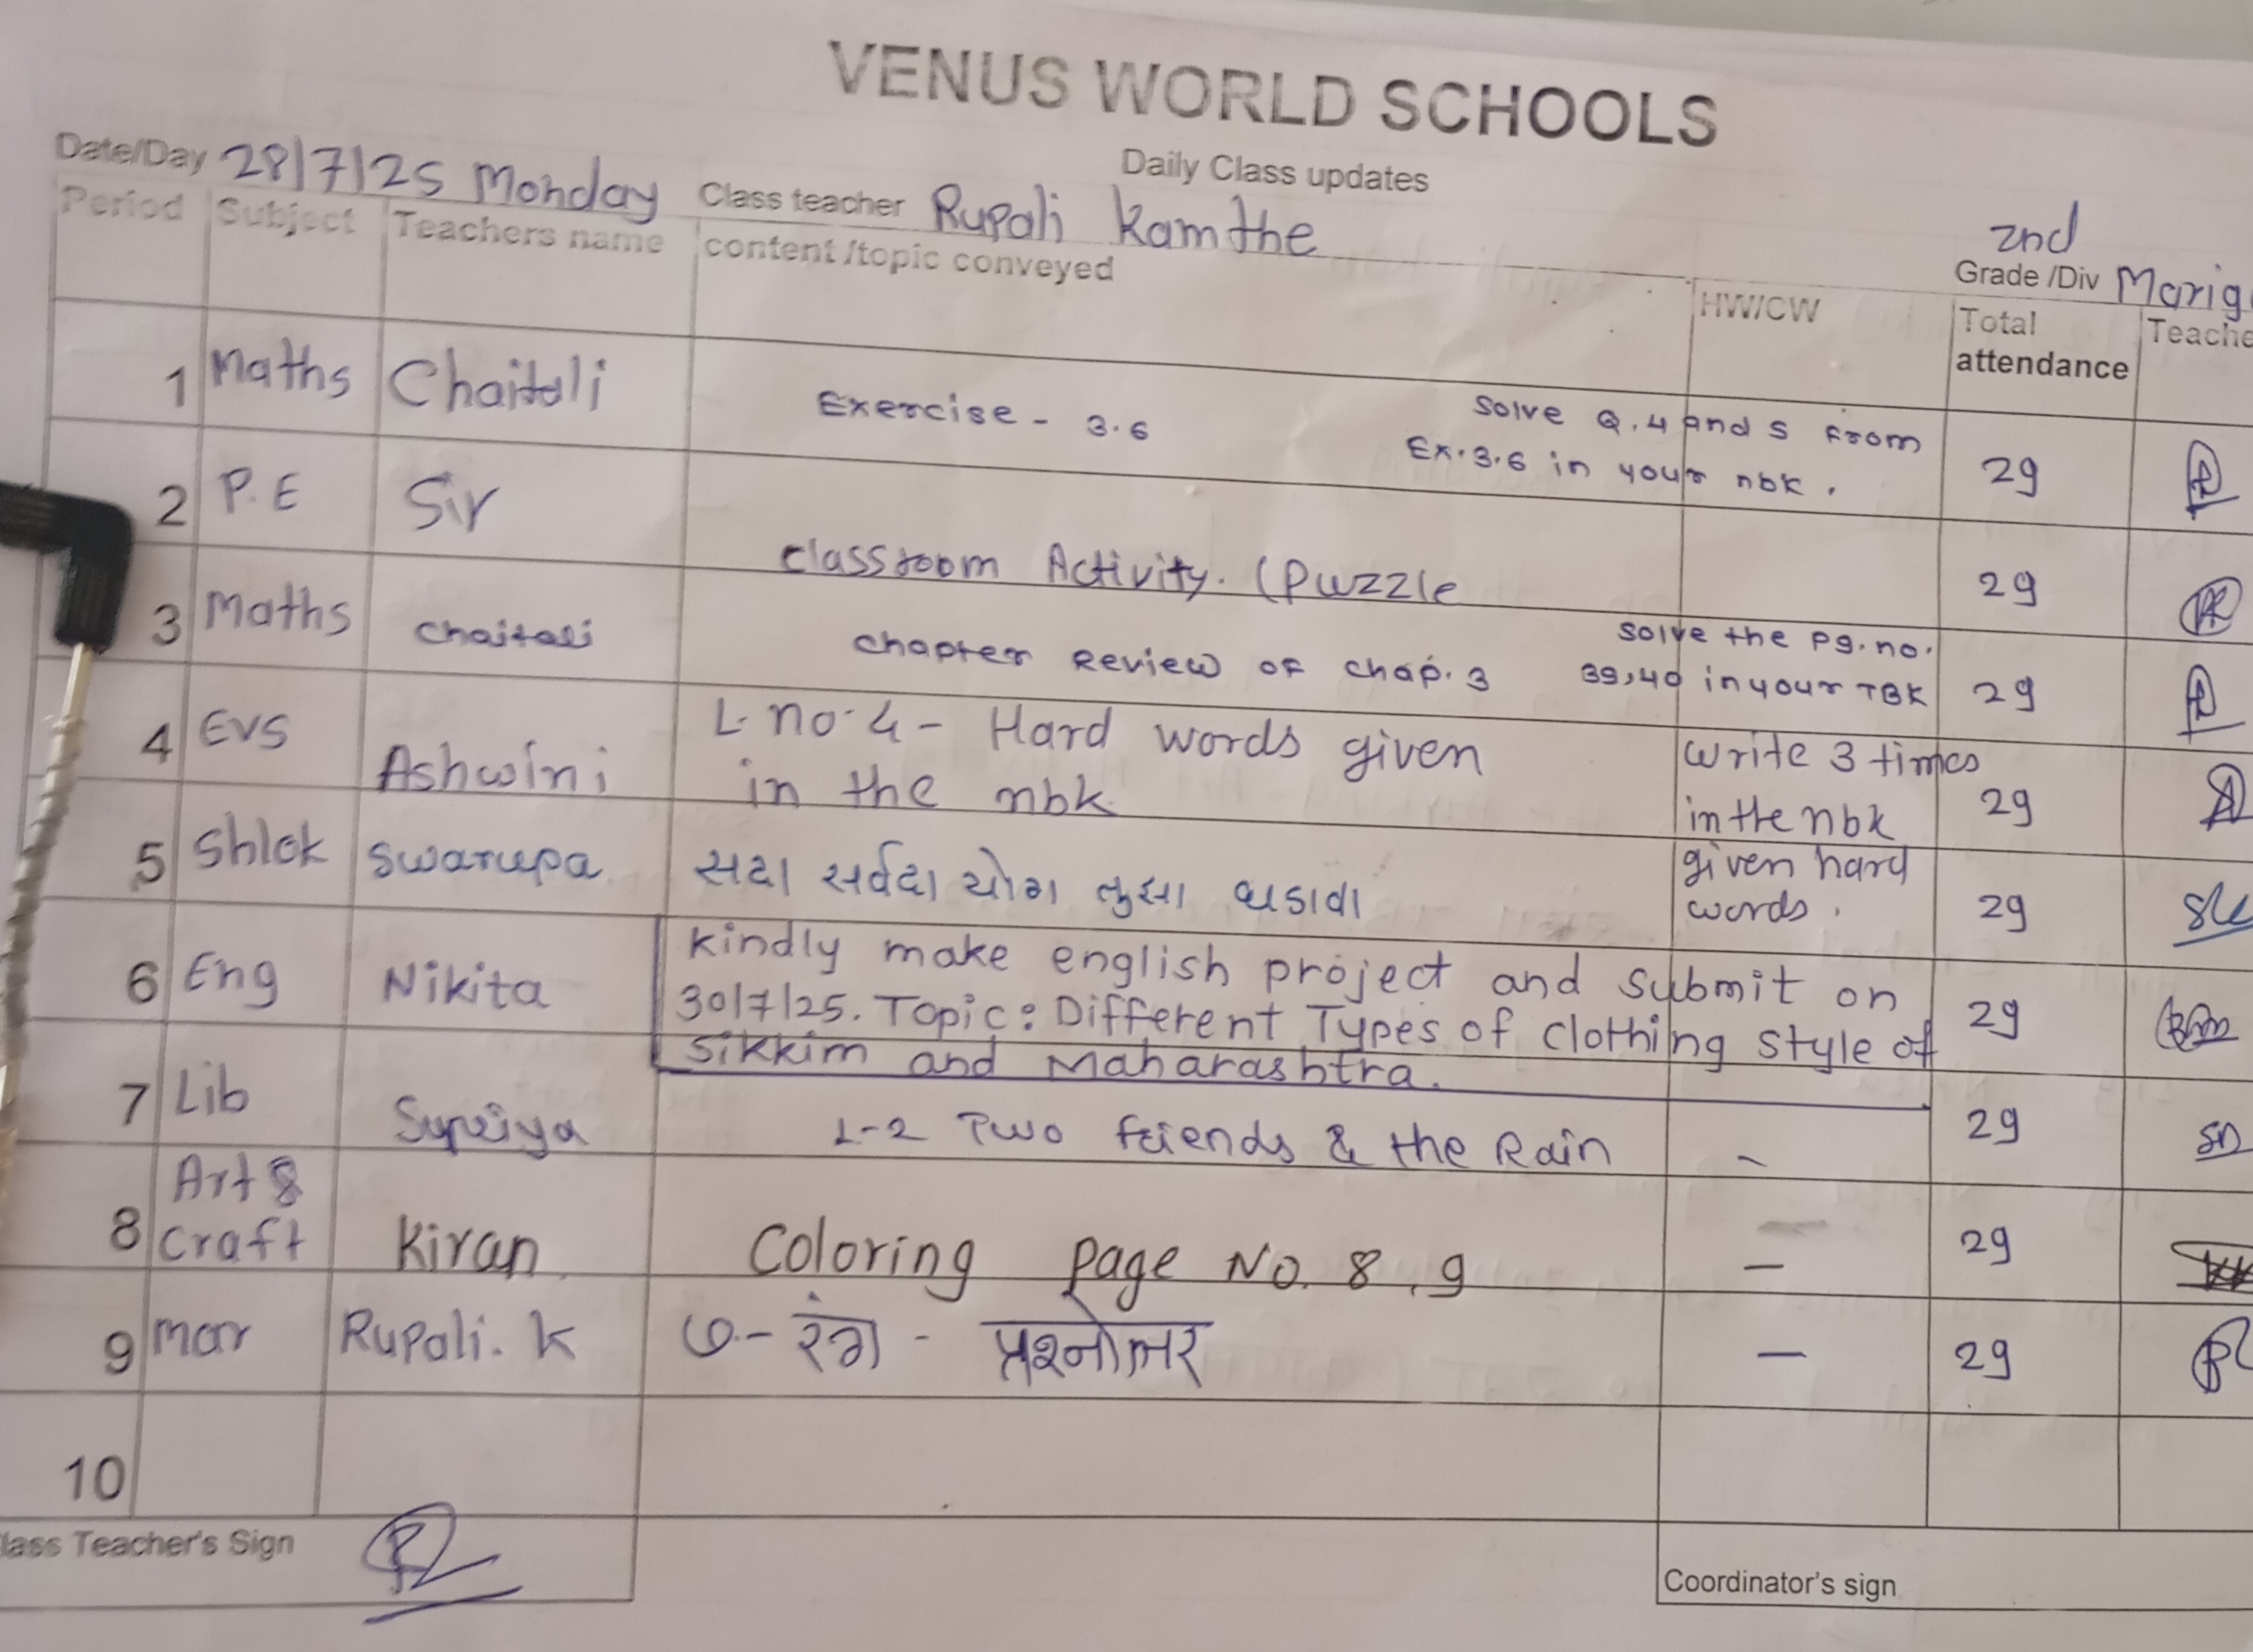 VENUS WORLD SCHOOLS
Daily Class updates
Date/Day 28/7/25 Monday Class teacher Rupali Kamthe
2nd
Grade /Div Marig
Period Subject Teachers name content /topic conveyed HW/CW Total attendance Teache
1 Maths Chaitali Exercise - 3.6 Solve Q.4 and 5 from
Ex.3.6 in your nbk. 29
2 P.E Sir Classroom Activity. (Puzzle 29
3 Maths Chaitali Chapter Review of Chap. 3 Solve the pg.no.
39,40 in your TBK 29
4 EVS Ashwini L. no. 4 - Hard words given
in the nbk
Write 3 times
in the nbk
given hard
words.
29
5 Shlok Swarupa सदा सर्वदा योग तुझा घडावा 29
6 Eng Nikita Kindly make english project and submit on
30/7/25. Topic: Different Types of clothing style of
Sikkim and Maharashtra.
29
7 Lib Supriya L-2 Two friends & the Rain - 29
8 Art &
Craft Kiran Coloring page No. 8, 9 - 29
9 Mar Rupali. K ७ - रंग - प्रश्नोत्तर - 29
10
lass Teacher's Sign
Coordinator's sign